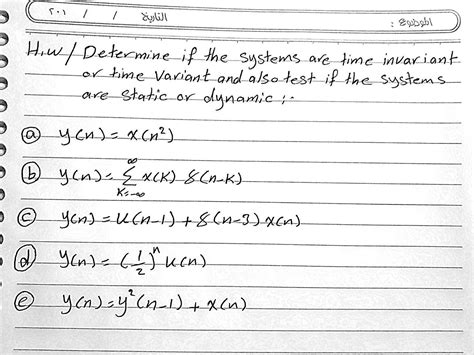 الموضوع :    التاريخ    /    /    ٢٠١
H.W/ Determine if the systems are time invariant
or time variant and also test if the systems
are static or dynamic ;-
ⓐ y(n) = x(n²)
ⓑ y(n) = ∞ΣK=-∞ x(K) δ(n-K)
ⓒ y(n) = u(n-1) + δ(n-3) x(n)
ⓓ y(n) = (1/2)ⁿ u(n)
ⓔ y(n) = y²(n-1) + x(n)